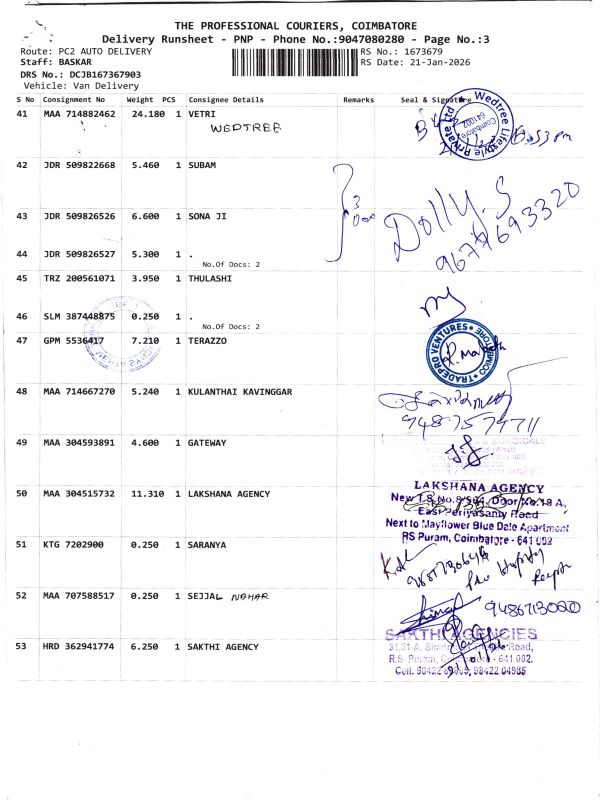 THE PROFESSIONAL COURIERS, COIMBATORE
Delivery Runsheet - PNP - Phone No.:9047080280 - Page No.:3
Route: PC2 AUTO DELIVERY
RS No.: 1673679
Staff: BASKAR
RS Date: 21-Jan-2026
DRS No.: DCJB167367903
Vehicle: Van Delivery
S No Consignment No Weight PCS Consignee Details Remarks Seal & Signature
41 MAA 714882462 24.180 1 VETRI
WEDTREE
Wedtree Lifestyle Private Ltd
Coimbatore
641002
42 JDR 509822668 5.460 1 SUBAM
43 JDR 509826526 6.600 1 SONA JI
Dolly. S
9677693320
44 JDR 509826527 5.300 1 .
No.Of Docs: 2
45 TRZ 200561071 3.950 1 THULASHI
46 SLM 387448875 0.250 1 .
No.Of Docs: 2
47 GPM 5536417 7.210 1 TERAZZO
TRADEPRO VENTURES
48 MAA 714667270 5.240 1 KULANTHAI KAVINGGAR
49 MAA 304593891 4.600 1 GATEWAY
50 MAA 304515732 11.310 1 LAKSHANA AGENCY
LAKSHANA AGENCY
East Periyasamy Road
Next to Mayflower Blue Dale Apartment
RS Puram, Coimbatore - 641 002
51 KTG 7202900 0.250 1 SARANYA
52 MAA 707588517 0.250 1 SEJJAL NAHAR
9486713020
53 HRD 362941774 6.250 1 SAKTHI AGENCY
SAKTHI AGENCIES
R.S. Puram, Coimbatore - 641 002.